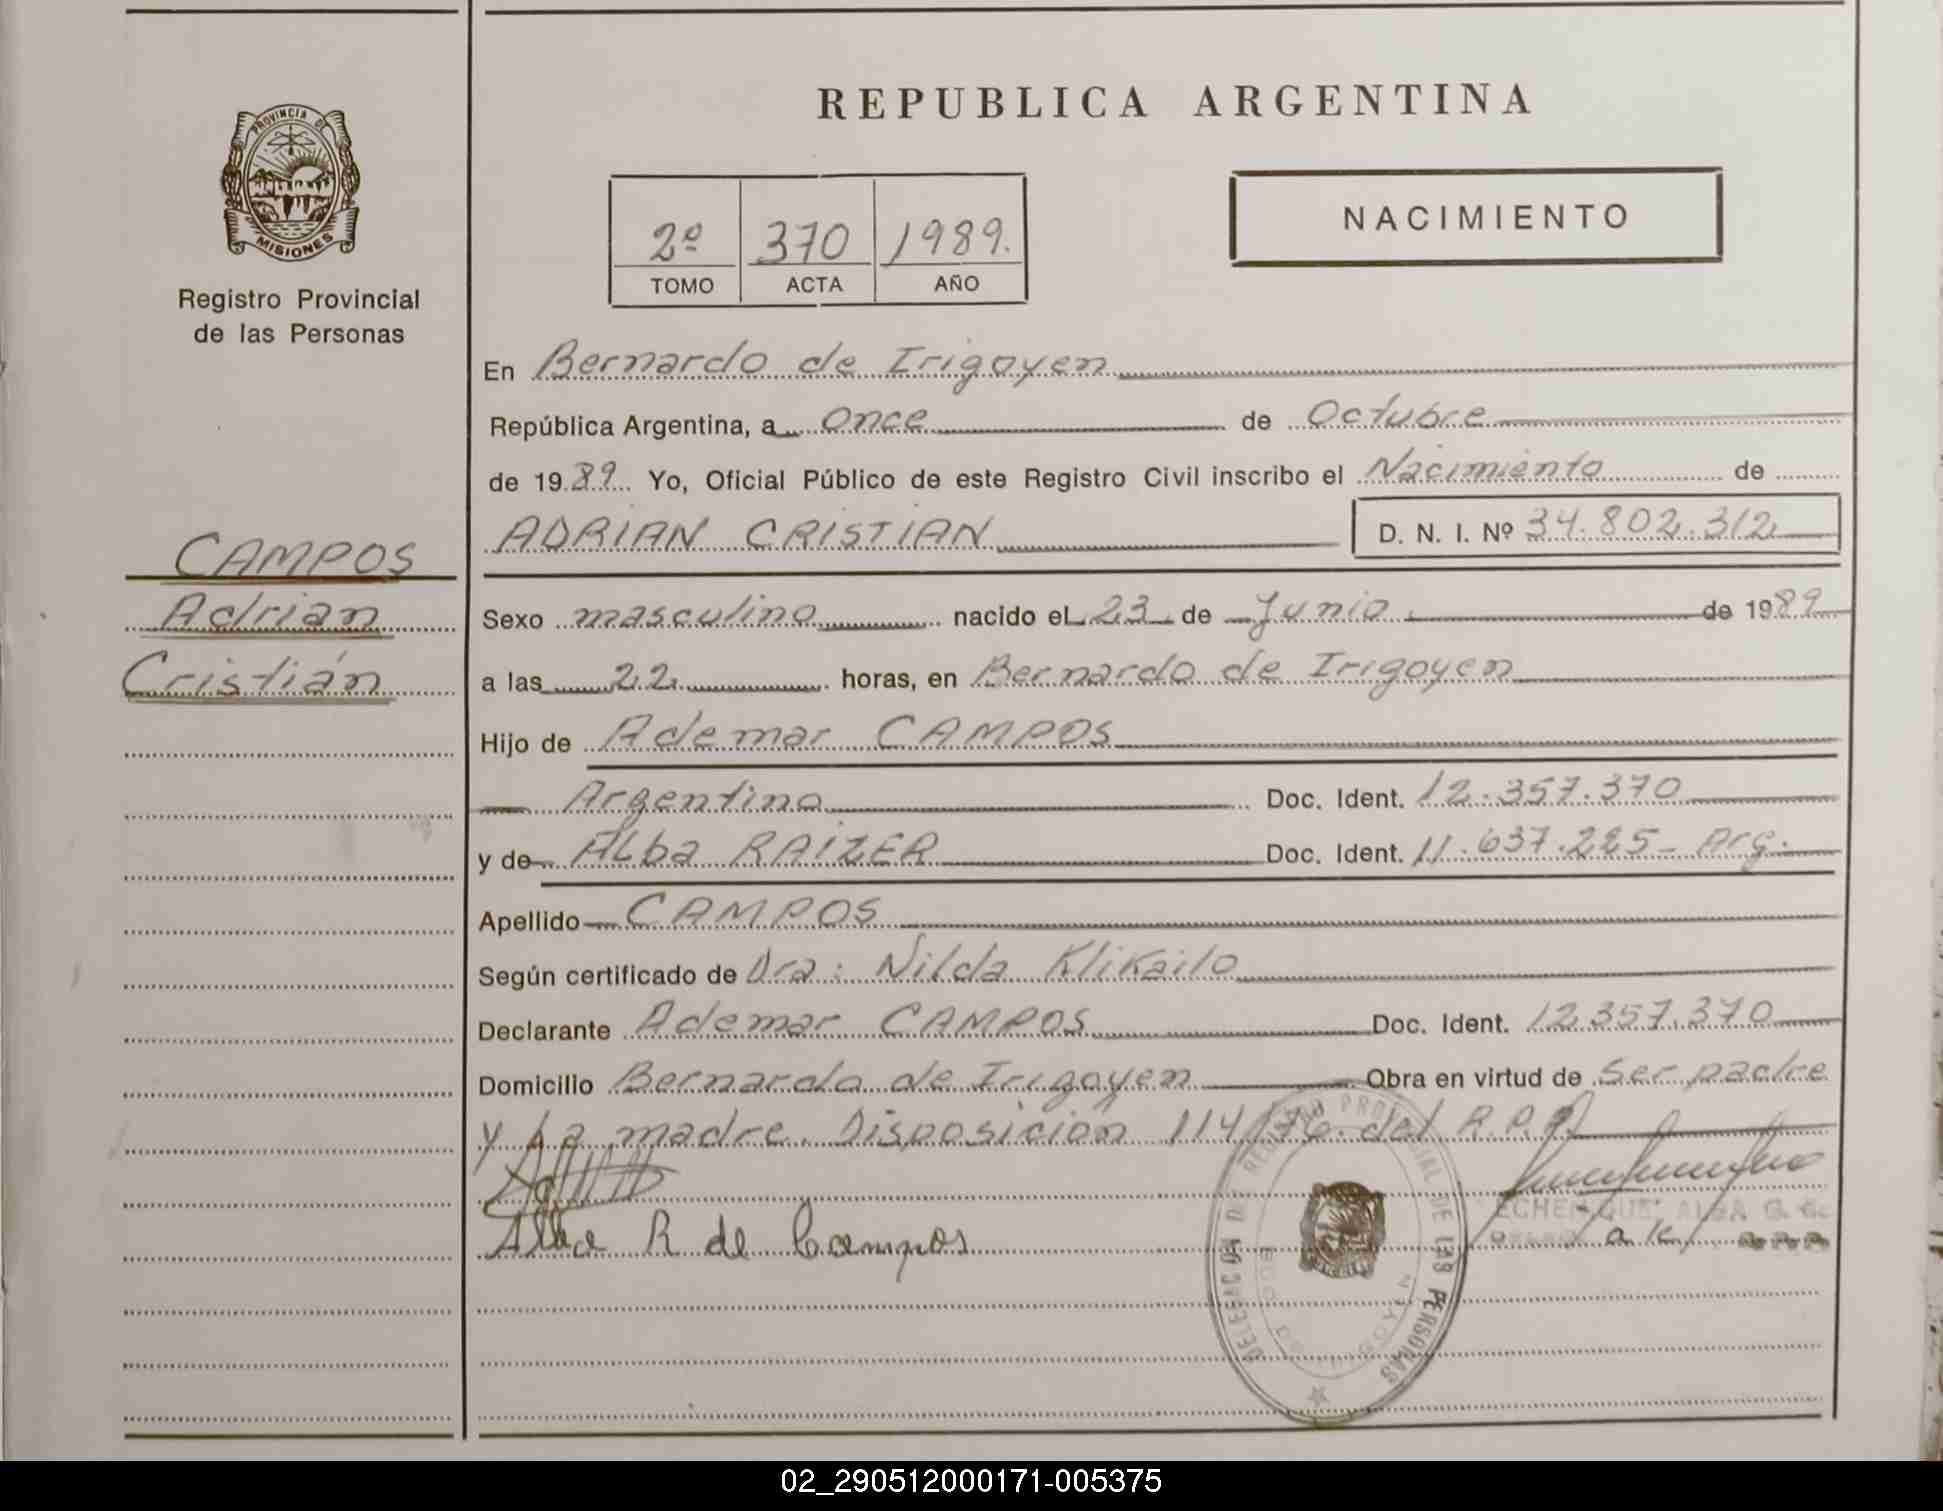 PROVINCIA DE
MISIONES
Registro Provincial
de las Personas
CAMPOS
Adrian
Cristián
REPUBLICA ARGENTINA
2º 370 1989.
TOMO ACTA AÑO
NACIMIENTO
En Bernardo de Irigoyen
República Argentina, a once de Octubre
de 1989 Yo, Oficial Público de este Registro Civil inscribo el Nacimiento de
ADRIAN CRISTIAN D. N. I. Nº 34.802.312
Sexo masculino nacido el 23 de Junio de 1989
a las 22 horas, en Bernardo de Irigoyen
Hijo de Ademar CAMPOS
Argentino Doc. Ident. 12.357.370
y de Alba RAIZER Doc. Ident. 11.637.225- Arg.
Apellido CAMPOS
Según certificado de Dra: Nilda Klikailo
Declarante Ademar CAMPOS Doc. Ident. 12.357.370
Domicilio Bernardo de Irigoyen Obra en virtud de ser padre
y la madre. Disposición 114/76 del R.P.P.
Alba R de Campos
ECHENIQUE ALBA G.
REGISTRO PROVINCIAL DE LAS PERSONAS
02_290512000171-005375